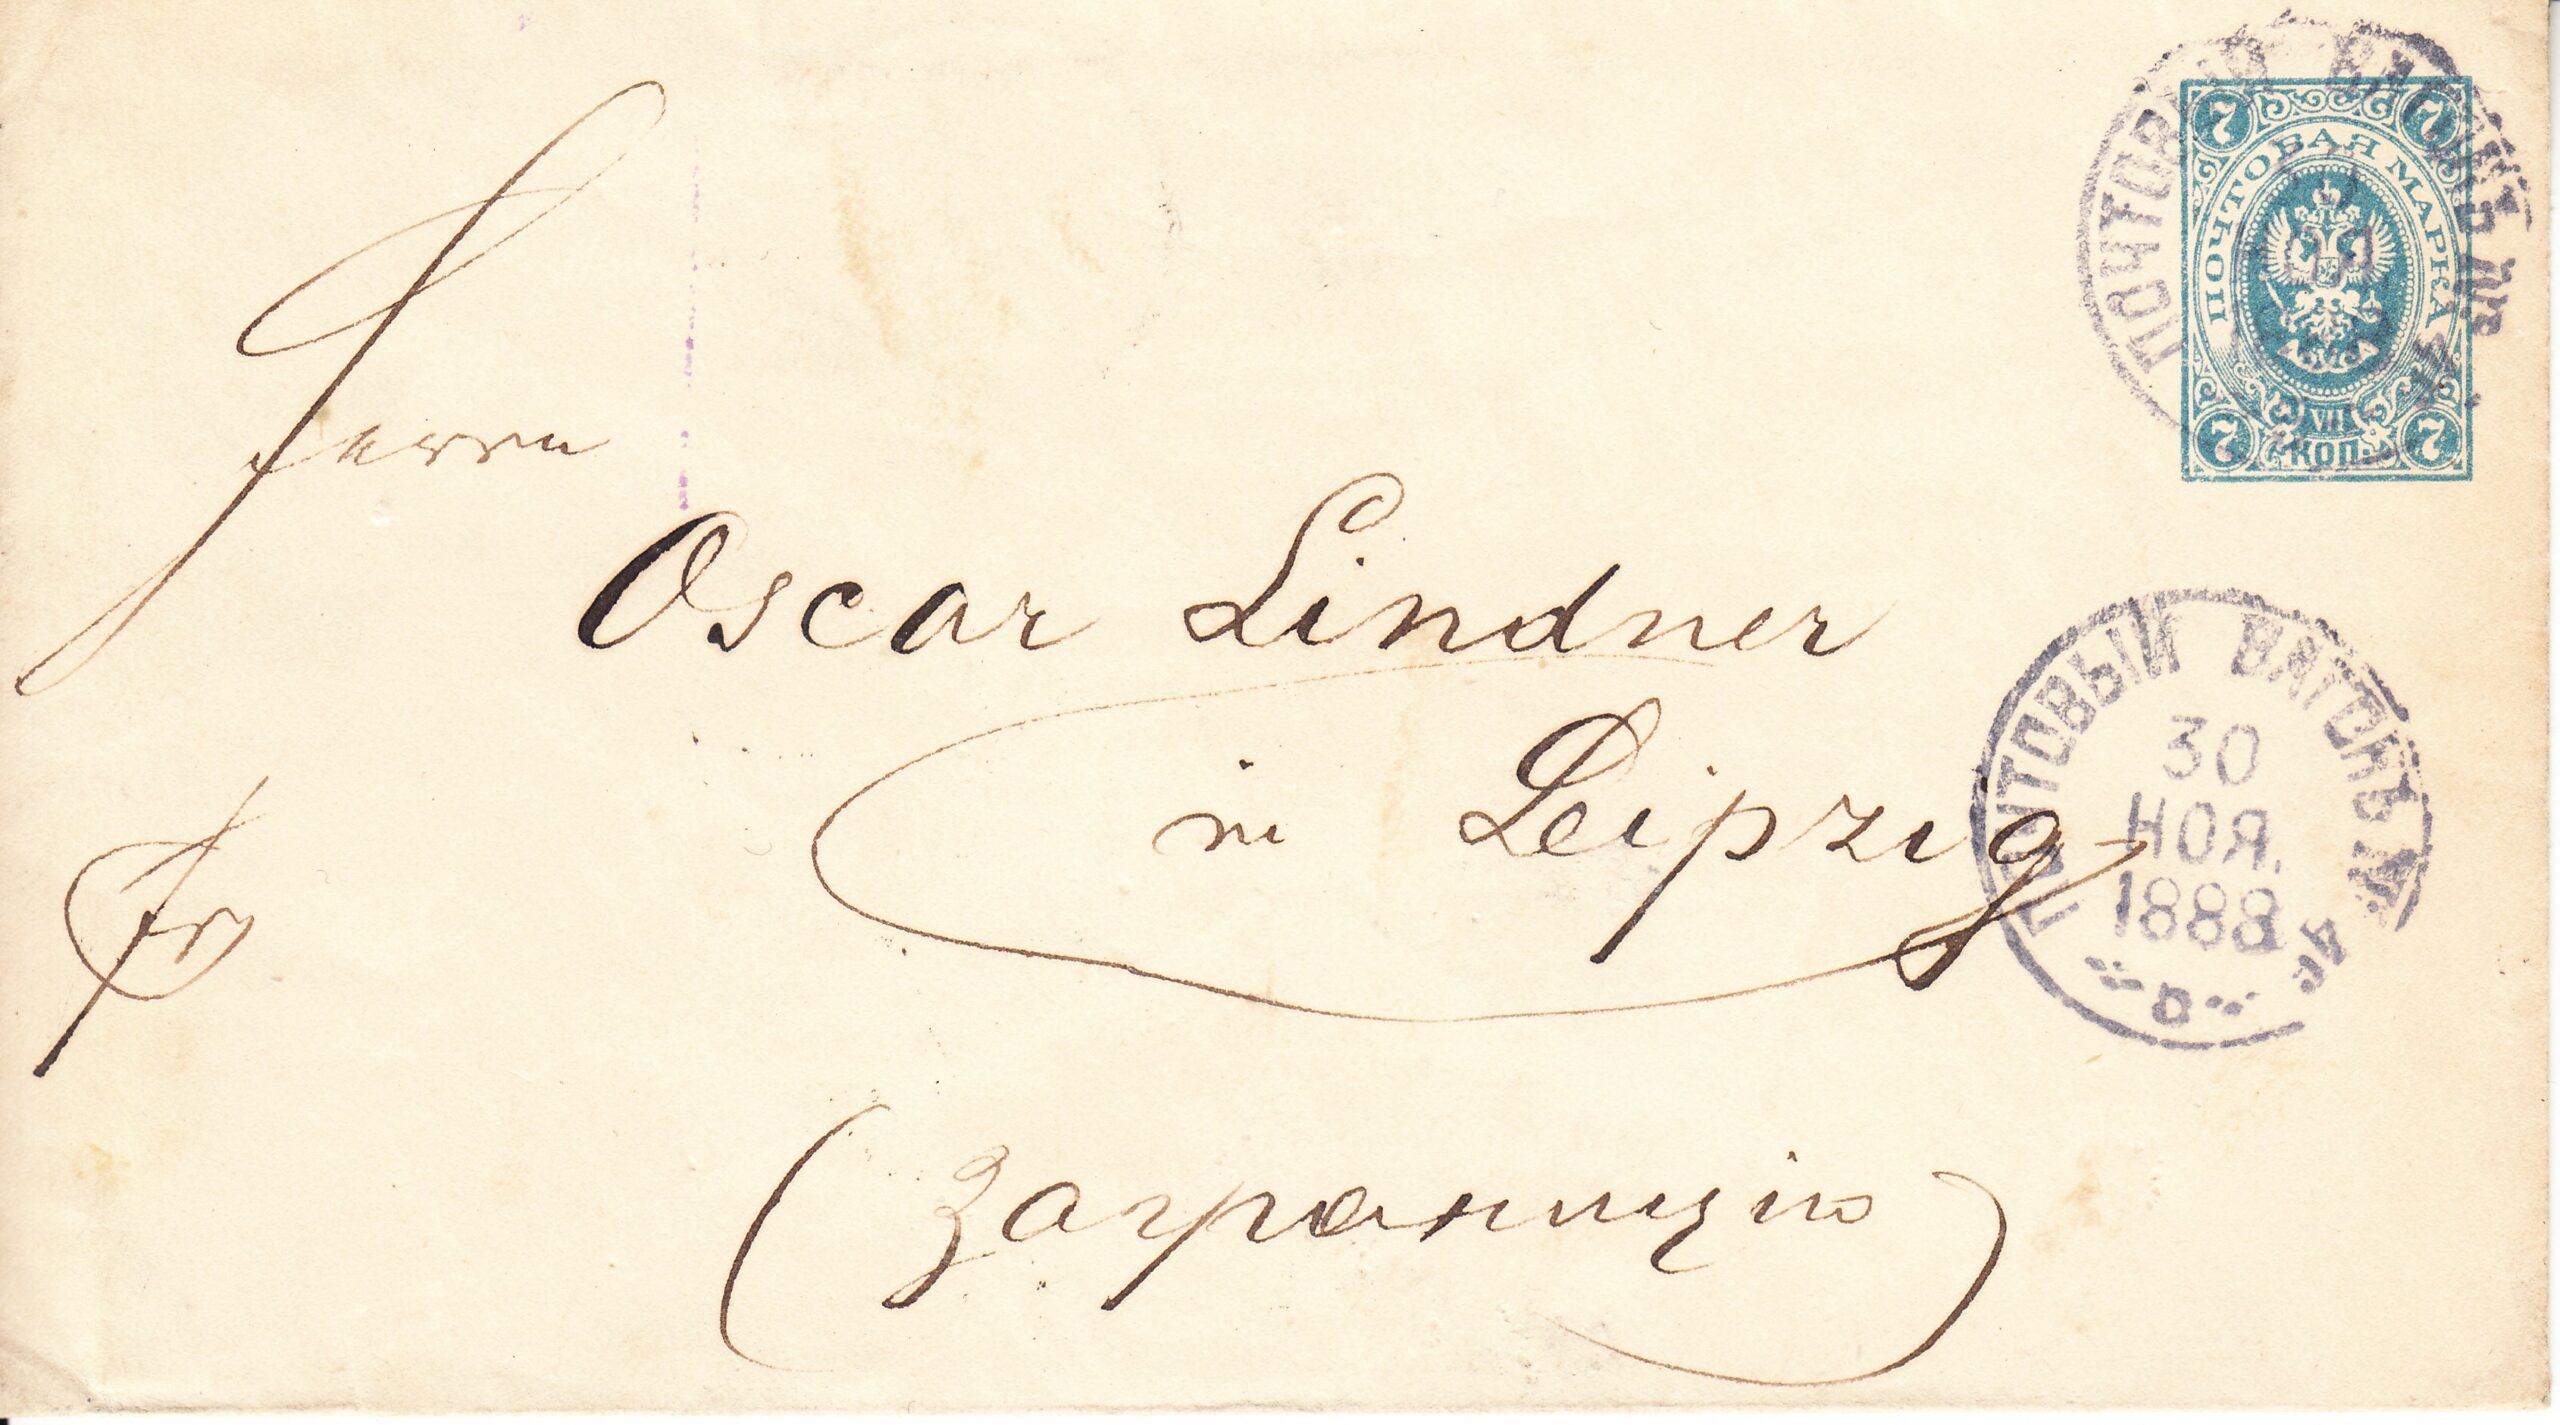 7 7
ПОЧТОВАЯ МАРКА
VII
7 КОП. 7
ПОЧТОВЫЙ ВАГОНЪ №
Herrn
Oscar Lindner
in Leipzig
Fr
ПОЧТОВЫЙ ВАГОНЪ №
30
НОЯ.
1888
(Заграницію)